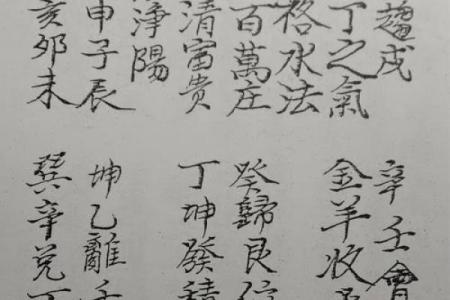 趨戌 辛壬會
丁之氣 金羊收
格水法
百萬庄 癸歸艮位
清富貴 丁坤發積
淨陽
申子辰 坤乙離壬
亥卯未 巽辛兌丁